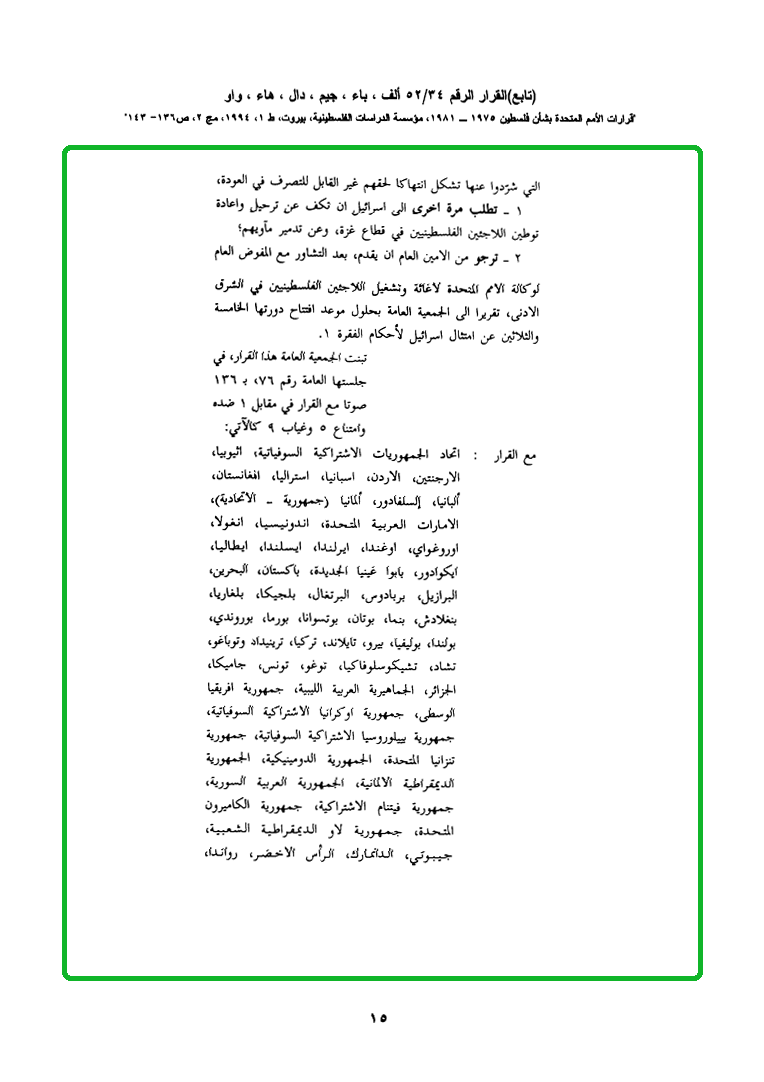 (تابع)القرار الرقم ٥٢/٣٤ ألف ، باء ، جيم ، دال ، هاء ، واو
"قرارات الأمم المتحدة بشأن فلسطين ١٩٧٥ ــ ١٩٨١، مؤسسة الدراسات الفلسطينية، بيروت، ط ١، ١٩٩٤، مج ٢، ص١٣٦- ١٤٣"
التي شرّدوا عنها تشكل انتهاكا لحقهم غير القابل للتصرف في العودة،
١ ــ تطلب مرة اخرى الى اسرائيل ان تكف عن ترحيل واعادة
توطين اللاجئين الفلسطينيين في قطاع غزة، وعن تدمير مآويهم؛
٢ ــ ترجو من الامين العام ان يقدم، بعد التشاور مع المفوض العام
لوكالة الامم المتحدة لاغاثة وتشغيل اللاجئين الفلسطينيين في الشرق
الادنى، تقريرا الى الجمعية العامة بحلول موعد افتتاح دورتها الخامسة
والثلاثين عن امتثال اسرائيل لأحكام الفقرة ١.
تبنت الجمعية العامة هذا القرار، في
جلستها العامة رقم ٧٦، بـ ١٣٦
صوتا مع القرار في مقابل ١ ضده
وامتناع ٥ وغياب ٩ كالآتي:
مع القرار : اتحاد الجمهوريات الاشتراكية السوفياتية، اثيوبيا،
الارجنتين، الاردن، اسبانيا، استراليا، افغانستان،
ألبانيا، إلسلفادور، ألمانيا (جمهورية ــ الاتحادية)،
الامارات العربية المتحدة، اندونيسيا، انغولا،
اوروغواي، اوغندا، ايرلندا، ايسلندا، ايطاليا،
ايكوادور، بابوا غينيا الجديدة، باكستان، البحرين،
البرازيل، بربادوس، البرتغال، بلجيكا، بلغاريا،
بنغلادش، بنما، بوتان، بوتسوانا، بورما، بوروندي،
بولندا، بوليفيا، بيرو، تايلاند، تركيا، ترينيداد وتوباغو،
تشاد، تشيكوسلوفاكيا، توغو، تونس، جاميكا،
الجزائر، الجماهيرية العربية الليبية، جمهورية افريقيا
الوسطى، جمهورية اوكرانيا الاشتراكية السوفياتية،
جمهورية بييلوروسيا الاشتراكية السوفياتية، جمهورية
تنزانيا المتحدة، الجمهورية الدومينيكية، الجمهورية
الديمقراطية الالمانية، الجمهورية العربية السورية،
جمهورية فيتنام الاشتراكية، جمهورية الكاميرون
المتحدة، جمهورية لاو الديمقراطية الشعبية،
جيبوتي، الدانمارك، الرأس الاخضر، رواندا،
١٥